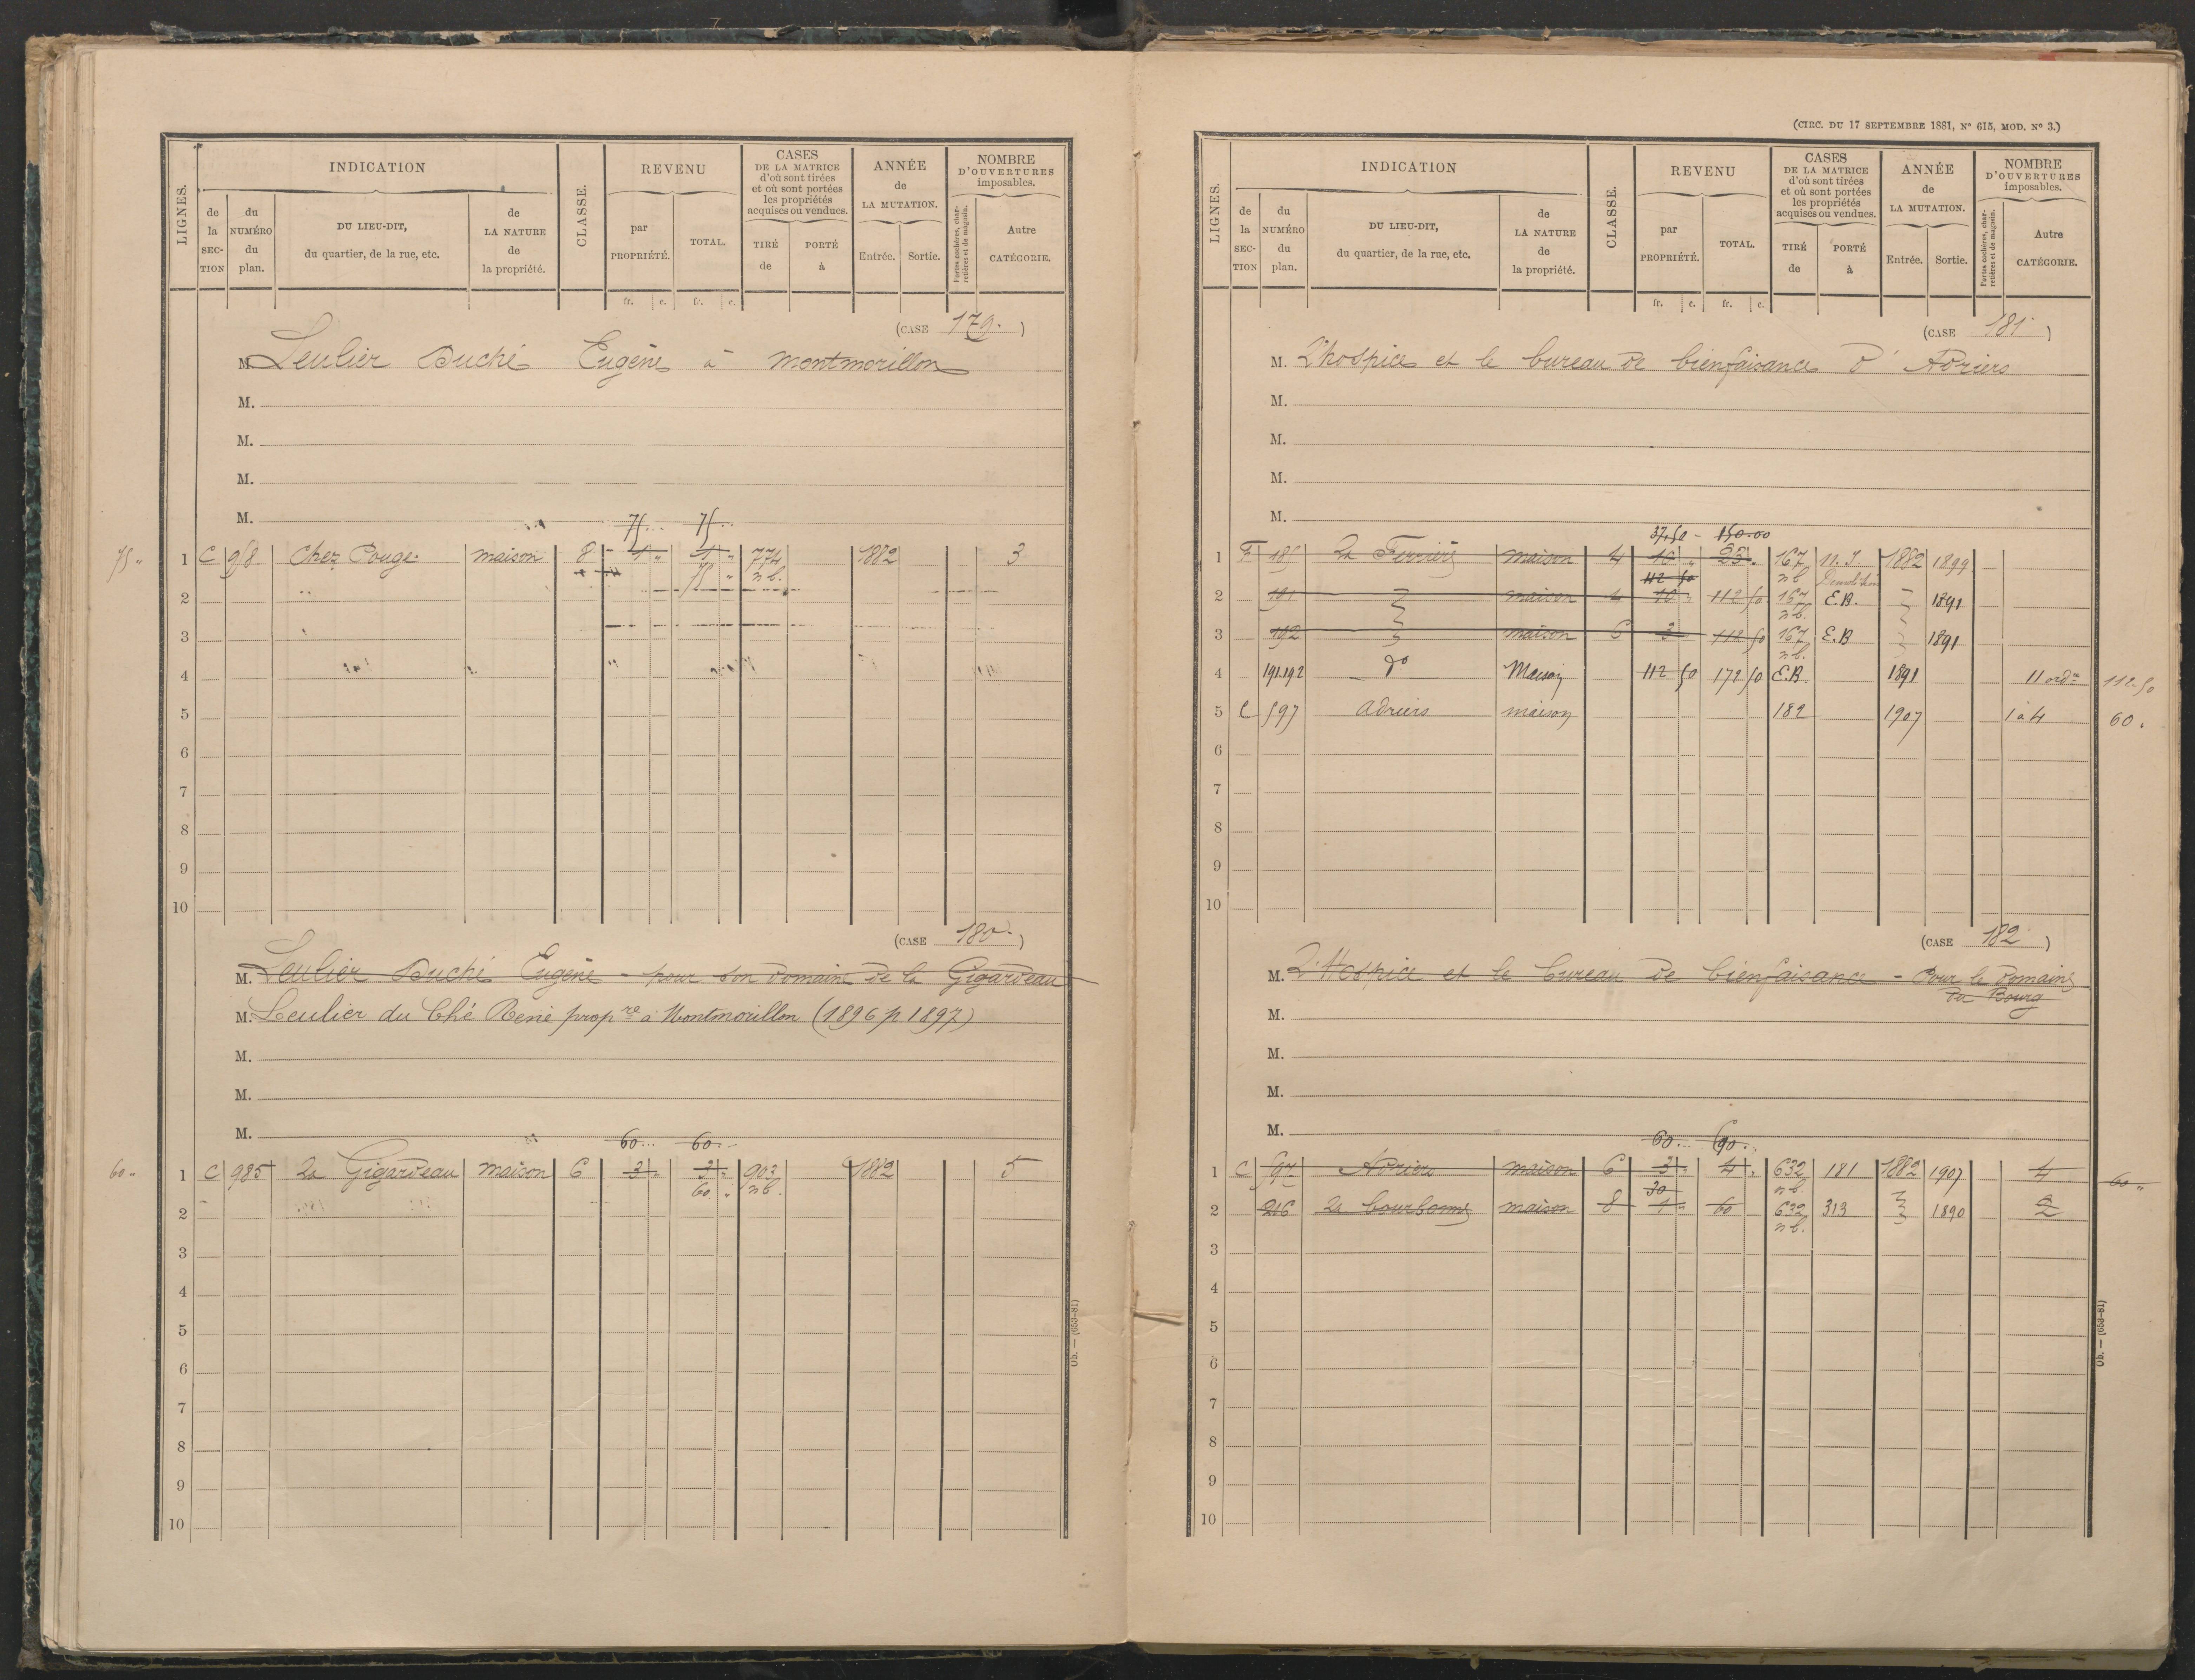 LIGNES.
INDICATION
de la SECTION
du NUMÉRO du plan.
DU LIEU-DIT, du quartier, de la rue, etc.
de LA NATURE de la propriété.
CLASSE.
REVENU
par PROPRIÉTÉ.
TOTAL.
CASES DE LA MATRICE d'où sont tirées et où sont portées les propriétés acquises ou vendues.
TIRÉ de
PORTÉ à
ANNÉE de LA MUTATION.
Entrée.
Sortie.
NOMBRE D'OUVERTURES imposables.
Portes cochères, charretières et de magasin.
Autre CATÉGORIE.
fr. c. fr. c.
(CASE 179.)
M. Leulier Duché Eugène à Montmorillon
M.
M.
M.
M.
75 75
75 " 1 C 958 Chez Pouge maison 8 1 " 1 " 774 1882 3
75 " n b.
2
3
4
5
6
7
8
9
10
(CASE 180.)
M. Leulier Duché Eugène - pour son domaine de la Gigardeau
M. Leulier du Ché René propre à Montmorillon (1896 p 1897)
M.
M.
M.
60 60
60 " 1 C 985 La Gigardeau maison 6 3 " 3 " 903 1882 5
60 " n b.
2
3
4
5
6
7
8
9
10
Ob. — (653-81)
(CIRC. DU 17 SEPTEMBRE 1881, N° 615, MOD. N° 3.)
LIGNES.
INDICATION
de la SECTION
du NUMÉRO du plan.
DU LIEU-DIT, du quartier, de la rue, etc.
de LA NATURE de la propriété.
CLASSE.
REVENU
par PROPRIÉTÉ.
TOTAL.
CASES DE LA MATRICE d'où sont tirées et où sont portées les propriétés acquises ou vendues.
TIRÉ de
PORTÉ à
ANNÉE de LA MUTATION.
Entrée.
Sortie.
NOMBRE D'OUVERTURES imposables.
Portes cochères, charretières et de magasin.
Autre CATÉGORIE.
fr. c. fr. c.
(CASE 181)
M. L'hospice et le bureau de bienfaisance d'Adriers
M.
M.
M.
M.
37,50 - 150.00
1 F 185 La Ferrière maison 4 10 " 167 1882 1899
112 50 n b Demolition
2 191 maison 4 10 " 112 50 167 E.B. 1891
n b.
3 192 maison 6 3 112 50 167 E.B 1891
n b.
4 191.192 d° Maison 112 50 172 50 E.B. 1891 11 ordre 112.50
5 C 597 Adriers maison 182 1907 1 à 4 60.
6
7
8
9
10
(CASE 182)
M. L'Hospice et le bureau de bienfaisance - Pour le domaine
du Bourg
M.
M.
M.
M.
60 90
1 C 597 Adriers maison 6 3 " 4 " 632 181 1882 1907 4 60 "
30 n b.
2 216 maison 8 1 " 60 632 313 1890 2
n b.
3
4
5
6
7
8
9
10
Ob. — (653-81)